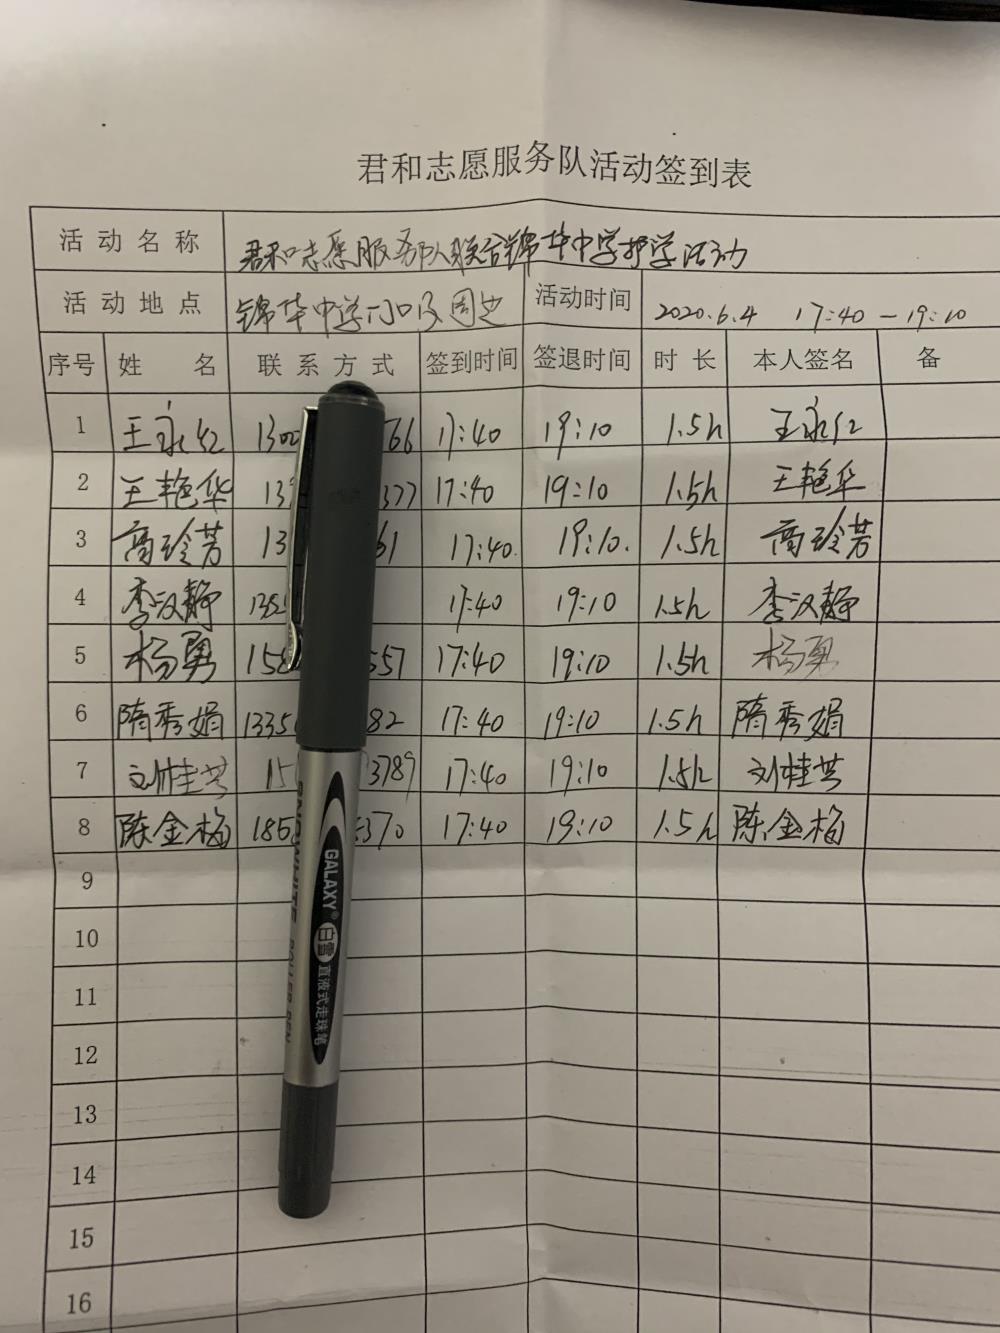 君和志愿服务队活动签到表
活动名称 君和志愿服务队联合锦华中学护学活动
活动地点 锦华中学门口及周边 活动时间 2020.6.4 17:40—19:10
序号 姓名 联系方式 签到时间 签退时间 时长 本人签名 备
1 王永红 1300 766 17:40 19:10 1.5h 王永红
2 王艳华 13 377 17:40 19:10 1.5h 王艳华
3 高玲芳 13 61 17:40. 19:10. 1.5h 高玲芳
4 李汉静 135 17:40 19:10 1.5h 李汉静
5 杨勇 158 557 17:40 19:10 1.5h 杨勇
6 隋秀娟 1335 82 17:40 19:10 1.5h 隋秀娟
7 刘桂芸 15 3789 17:40 19:10 1.5h 刘桂芸
8 陈金梅 185 370 17:40 19:10 1.5h 陈金梅
9
10
11
12
13
14
15
16
GALAXY® 白雪 直液式走珠笔
ROLLER PEN